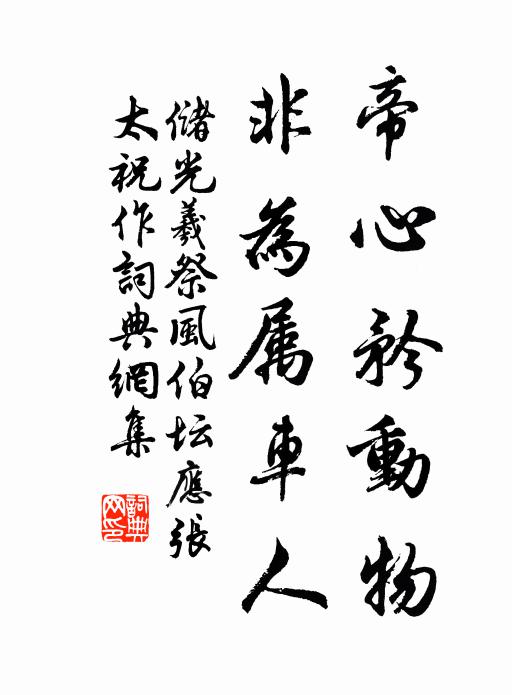 帝心矜動物
非為属車人
儲光羲祭風伯坛應張
太祝作詞典網集
詞典网印